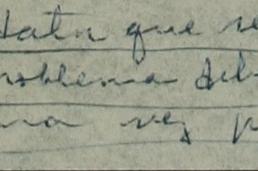 tata que se
roblema del
na vez p